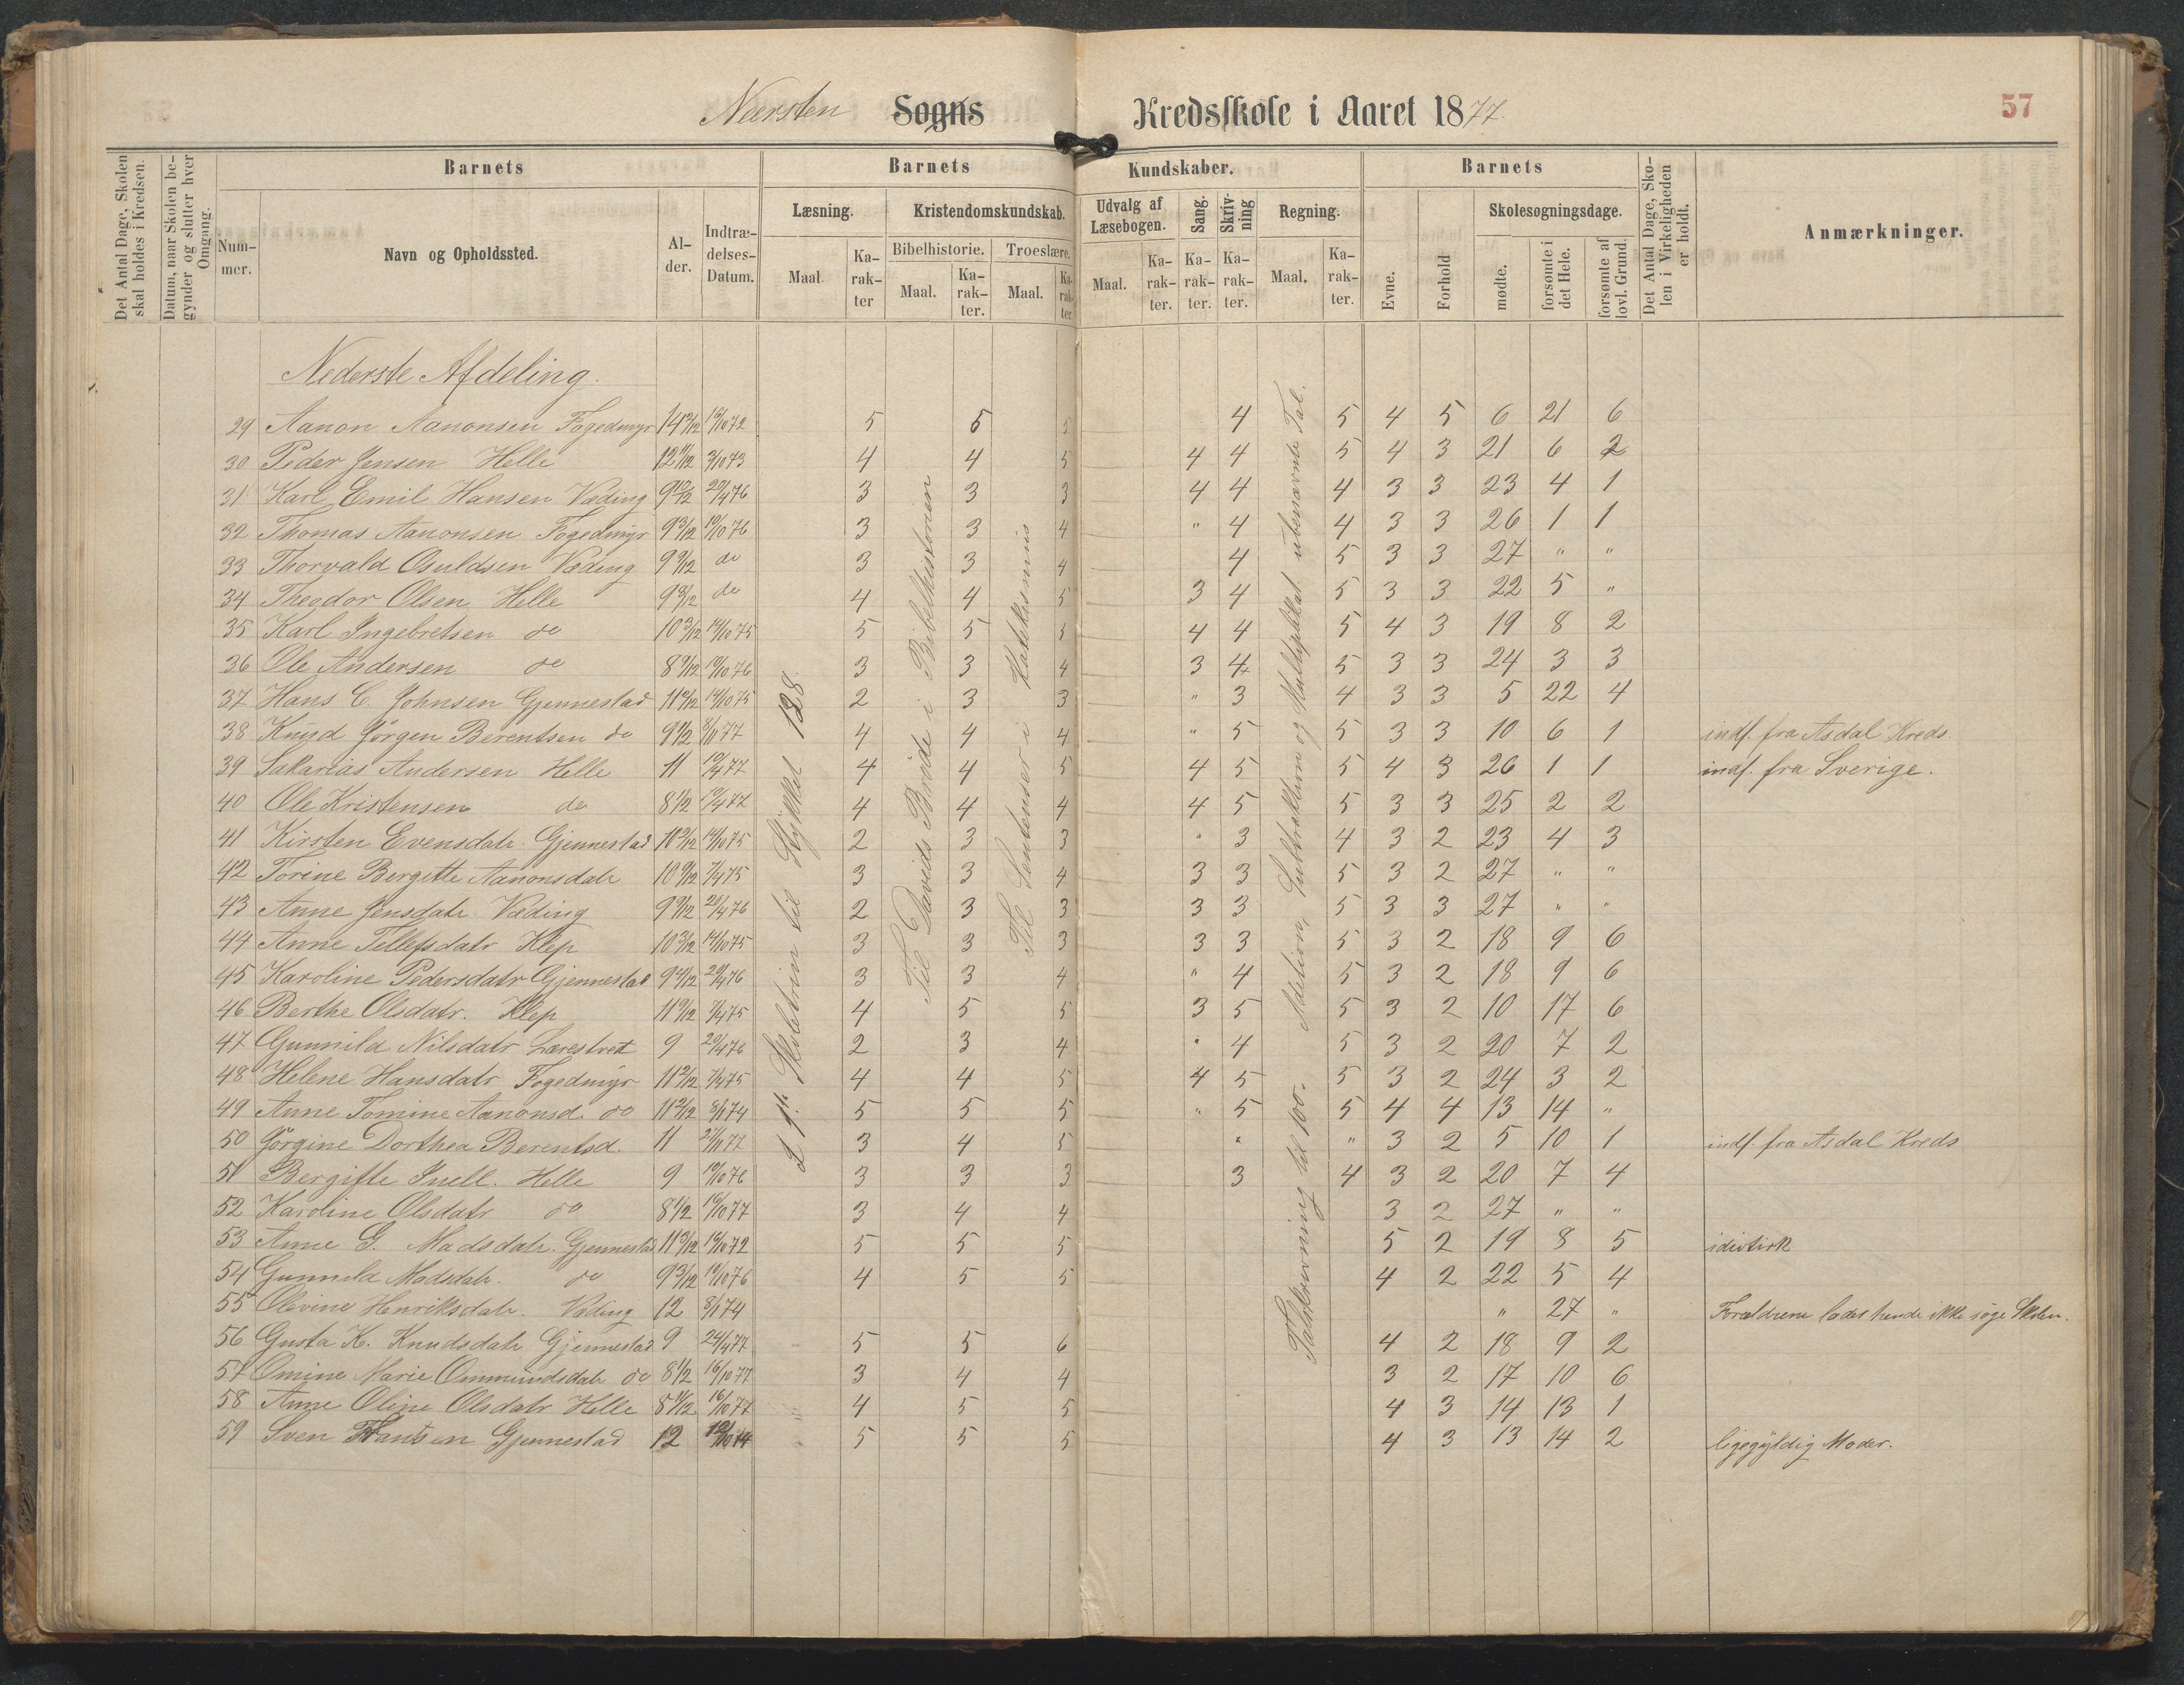 Nærsten Sogns Kredsskole i Aaret 1877
57
Det Antal Dage, Skolen skal holdes i Kredsen.
Datum, naar Skolen begynder og slutter hver Omgang.
Barnets
Nummer.
Navn og Opholdssted.
Alder.
Indtrædelses-Datum.
Barnets Kundskaber.
Læsning.
Maal.
Karakter
Kristendomskundskab.
Bibelhistorie.
Maal.
Karakter.
Troeslære.
Maal.
Karakter.
Udvalg af Læsebogen.
Maal.
Karakter.
Sang.
Karakter.
Skrivning
Karakter.
Regning.
Maal.
Karakter.
Barnets
Evne.
Forhold
Skolesøgningsdage.
mødte.
forsømte i det Hele.
forsømte af lovl. Grund.
Det Antal Dage, Skolen i Virkeligheden er holdt.
Anmærkninger.
Nederste Afdeling.
L 1ste Skoletrin til Stykket 128.
Til Davids Bröde i Bibelhistorien
Til Sentenser i Katekismus
Talskrivning til 100. Adition, Subtraktion og Multiplikat ubenævnte Tal.
29 Aanon Aanonsen Fogedmyr 14 3/12 16/10 72 5 5 5 4 5 4 5 6 21 6
30 Peder Jensen Helle 12 11/12 3/10 73 4 4 5 4 4 5 4 3 21 6 2
31 Karl Emil Hansen Væding 9 10/12 20/4 76 3 3 3 4 4 4 3 3 23 4 1
32 Thomas Aanonsen Fogedmyr 9 3/12 10/10 76 3 3 4 " 4 4 3 3 26 1 1
33 Thorvald Osuldsen Væding 9 9/12 do 3 3 4 4 5 3 3 27 " "
34 Theodor Olsen Helle 9 3/12 do 4 4 5 3 4 5 3 3 22 5 "
35 Karl Ingebretsen do 10 3/12 14/10 75 5 5 5 4 4 5 4 3 19 8 2
36 Ole Andersen do 8 9/12 10/10 76 3 3 4 3 4 5 3 3 24 3 3
37 Hans C. Johnsen Gjennestad 11 6/12 14/10 75 2 3 3 " 3 4 3 3 5 22 4
38 Knud Jörgen Berentsen do 9 1/2 8/11 77 4 4 4 " 5 5 3 3 10 6 1 indf. fra Asdal Kreds
39 Sakarias Andersen Helle 11 10/4 77 4 4 5 4 5 5 4 3 26 1 1 indf. fra Sverige.
40 Ole Kristensen do 8 1/2 10/4 77 4 4 4 4 5 5 3 3 25 2 2
41 Kirsten Evensdatr. Gjennestad 14/10 75 2 3 3 " 3 4 3 2 23 4 3
42 Torine Bergitte Aanonsdatr 10 9/12 7/4 75 3 3 4 3 3 5 3 2 27 " "
43 Anne Jensdatr. Væding 9 9/12 20/4 76 2 3 3 3 3 5 3 3 27 " "
44 Anne Tellefsdatr. Klep 10 3/12 14/10 75 3 3 3 3 3 5 3 2 18 9 6
45 Karoline Pedersdatr Gjennestad 9 4/12 20/4 76 3 3 4 " 4 5 3 2 18 9 6
46 Berthe Olsdatr. Klep 11 9/12 7/4 75 4 5 5 3 5 5 3 2 10 17 6
47 Gunnild Nilsdatr 9 20/4 76 2 3 4 " 4 5 3 2 20 7 2
48 Helene Hansdatr. Fogedmyr 11 2/12 7/4 75 4 4 5 4 5 5 3 2 24 3 2
49 Anne Tomine Aanonsd. do 11 2/12 8/1 74 5 5 5 " 5 5 4 4 13 14 "
50 Jörgine Dorthea Berentsd. 11 27/11 77 3 4 5 " " 3 2 5 10 1 indf. fra Asdal Kreds
51 Bergitte Snell. Helle 9 10/10 76 3 3 3 3 4 3 2 20 7 4
52 Karoline Olsdatr do 8 1/2 16/10 77 3 4 4 3 2 27 " "
53 Anne G. Madsdatr. Gjennestad 11 3/12 16/10 72 5 5 5 5 2 19 8 5 idiotisk
54 Gunnild Madsdatr. do 9 3/12 10/10 76 4 5 5 4 2 22 5 4
55 Olevine Henriksdatr. Væding 12 8/1 74 " 27 " Forældrene lader hende ikke søge Skolen.
56 Gusta K. Knudsdatr Gjennestad 9 24/4 77 5 5 6 4 2 18 9 2
57 Omine Marie Ommundsdatr do 8 1/2 16/10 77 3 4 4 3 2 17 10 6
58 Anne Oline Olsdatr Helle 8 1/12 16/10 77 4 5 5 4 3 14 13 1
59 Sven Hansen Gjennestad 12 5 5 5 4 3 13 14 2 ligegyldig Moder.